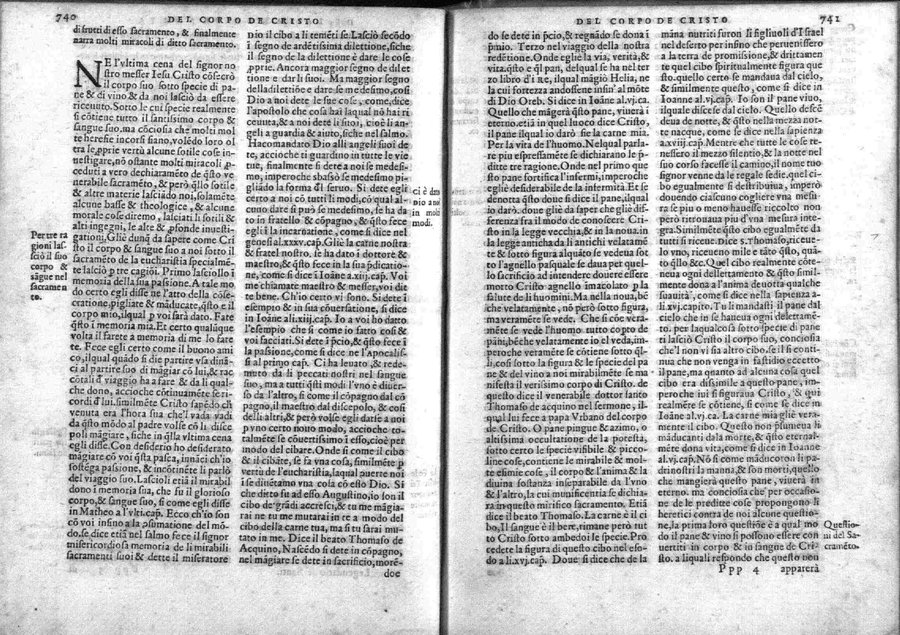 740
DEL CORPO DE CRISTO
di frutti di esso sacramento, & finalmente
narra molti miracoli di ditto sacramento.
NE l'vltima cena del signor no
stro messer Iesu Cristo cōsecrò
il corpo suo sotto specie di pa-
ne & di vino & da noi lasciò da essere
riceuuto. Sotto le cui specie realmente
si cōtiene tutto il santissimo corpo &
sangue suo. ma cōciosia che molti mol
te heresie incorsi siano, volēdo loro ol
tra le pprie vertù alcune sottile cose in-
uestigare, nō ostante molti miracoli p
ceduti a vero dechiaramēto de q̄sto ve
nerabile sacramēto, & però q̄llo sotile
& altre materie lasciādo noi, solamēte
alcune basse & theologice, & alcune
morale cose diremo, lasciati li sotili &
alti ingegni, le alte & pfonde inuesti-
gationi. Gliè dunq̄ da sapere come Cri
sto il corpo & sangue suo a noi sotto il
sacramēto de la eucharistia specialmē
te lasciò p tre cagiōi. Primo lasciollo ī
memoria della sua passione. A tale mo
do certo egli disse ne l'atto della cōse-
cratione. pigliate & māducate, q̄sto e il
corpo mio, ilqual p voi sarà dato. Fate
q̄sto ī memoria mia. Et certo qualūque
volta il farete a memoria di me lo fare
te. Fece egli certo come il buono ami
co, ilqual quādo si die partire vsa dinā
ci al partire suo di māgiar cō lui, & rac
cōtali d'viaggio ha a fare & da li qual
che dono, accioche cōtinuamēte se ri-
cordi d'lui. similmēte Cristo sapēdo ch
venuta era l'hora sua che'l vada vadi
da q̄sto mōdo al padre volse cō li disce
poli māgiare, sich e in q̄lla vltima cena
egli disse. Con desiderio ho desiderato
māgiare cō voi q̄sta pasca, innāci ch'io
sostēga passione, & incōtinēte li parlò
del viaggio suo. Lascioli etiā il mirabil
dono ī memoria sua, che fu il glorioso
corpo, & sangue suo, sì come egli disse
in Matheo a l'vlti.cap. Ecco ch'io son
cō voi insino a la psumatione del mō-
do. se dice etiā nel salmo fece il signor
misericordioso a memoria de li mirabili
sacramenti suoi & dette il miseratore
Per tre ra
gioni las-
ciò il suo
corpo &
sāgue nel
sacramen
to.
Dio il cibo a li temēti se. Lasciò secōdo
ī segno de ardētissima dilettione, siche
il segno de la dilettione è dare le cose
pprie. Ancora maggior segno de dilet
tione e dar li suoi. Ma maggior segno
della dilettiōe e dare se medesimo, cosi
Dio a noi dete le sue cose, come, dice
l'apostolo che cosa hai laqual nō hai ri
ceuuta, & a noi dete li sitoi, cioè li an-
geli a guardia & aiuto, siche nel salmo.
Hacomandato Dio alli angeli suoi de
te, accioche ti guardino in tutte le vie
tue, finalmente si dete a noi se medesi-
mo, imperoche sbassò se medesimo pi-
gliādo la forma d'l seruo. Si dete egli
certo a noi cō tutti li modi, cō qual al-
cuno dare si può se medesimo, se ha da
to in fratello & cōpagno, & q̄sto fece
egli ī la incarnatiōe, come si dice nel
genesi al.xxxv.cap. Gliè la carne nostra
& fratel nostro, se ha dato ī dottore &
maestro, & q̄sto fece voi ī la sua pdicatio-
ne, come si dice ī Ioāne a.xiij.cap. Voi
me chiamate maestro & messer, voi di-
te bene. Ch'io certo vi sono. Si dete ī
esempio & in sua cōuersatione, si dice
in Ioāne ali.xiij.cap. Io a voi ho datto
l'esempio che si come io fatto cosi &
voi facciati. Si dete ī pcio, & q̄sto fece ī
la passione, come si dice ne l'Apocalis-
si al primo cap. Ci ha leuato, & rede-
nuto da li peccati nostri nel sangue
suo, ma a tutti q̄sti modi l'vno è diuer-
so da l'altro, si come il cōpagno dal cō
pagno, il maestro dal discepolo, & così
delli altri, & però volse egli darsi a noi
p vno certo nuouo modo, accioche to-
talmēte se cōuertissimo ī esso, cioè per
modo del cibare. Onde si come il cibo
& il cibāte, se fa vna cosa, similmēte p
vertù de l'eucharistia, laqual mette noi
ī se diuētamo vna cosa cō esso Dio. Si
che ditto fu ad esso Augustino, io son il
cibo de' grādi accresci, & tu me māgia-
rai ne tu me mutarai in te a modo del
cibo della carne tua, ma si tu sarai mu-
tato in me. Dice il beato Thomaso de
Acquino, Nascēdo si dete in cōpagno,
nel māgiare se dete in sacrificio, morē-
doe
DEL CORPO DE CRISTO
741
do se dete in pcio, & regnādo se dona ī
pmio. Terzo nel viaggio della nostra
redētione. Onde egli e la via, verità, &
vita. q̄sto e q̄l pan, delqual se ha nel ter
zo libro d'i Re, ilqual māgiò Helia, ne
la cui fortezza andosse insin'al mōte
di Dio Oreb. Si dice in Ioāne al.vj.cap.
Quello che māgerà q̄sto pane, viuerà ī
eterno. etiā in quel luoco dice Cristo,
il pane ilqual io darò sie la carne mia.
Per la vita de l'huomo. Nelqual parla-
re piu espressamēte se dichiarano le p-
ditte tre ragione. Onde nel primo que
sto pane fortifica l'infermi, imperoche
egliè desiderabile de la infermità. Et se
denotta q̄sto doue si dice il pane, ilqual
io darò. doue gliè da saper che gliè dif-
ferenza fra il modo de conoscere Cri-
sto in la legge vecchia, & in la noua. in
la legge antica da li antichi velatamēte
& sotto figura alquāto se vedeua sot-
to l'agnello pasquale se daua per quel-
lo sacrificio ad intendere douere essere
morto Cristo agnello imaculato p la
salute de li huomini. Ma nella noua, bē
che velatamente, nō però sotto figura,
ma veramēte se vede. Che si cōe verà-
mēte se vede l'huomo tutto copto de
pāni, bēche velatamente io el veda, im-
peroche veramēte se cōtiene sotto q̄l-
li, cosi sotto la figura & le specie del pa
ne & del vino a noi mirabilmēte se ma
nifesta il verissimo corpo di Cristo. de
questo dice il venerabile dottor santo
Thomaso de acquino nel sermone, il-
qual lui fece a papa Vrbano del corpo
de Cristo. O pane pingue & azimo, o
altissima occultatione de la potestà,
sotto certo le specie visibile & picco-
line cose, contiene le mirabile & mol-
te esimie cose, il corpo & l'anima & la
diuina sostanza inseparabile da l'vno
& l'altro, la cui munificentia se dechia-
ra in questo mirifico sacramento. Etiā
dice il beato Thomaso. La carne è il ci
bo, il sangue è il bere, rimane però tut
to Cristo sotto ambedoi le specie. Pro
cedete la figura di questo cibo nel eso-
do a li.xvj.cap. Doue si dice che de la
Ci è da
Dio a noi
in molti
modi.
māna nutriti furon li figliuoli d'Israel
nel deserto per insino che peruenissero
a la terra de promissione, & drittamen-
te quel cibo spiritualmente figura que
sto. quello certo se mandaua dal cielo,
& similmente questo, come si dice in
Ioanne al.vj.cap. Io son il pane viuo,
ilquale discese dal cielo. Quello desce-
deua de notte, & q̄sto nella mezza not-
te nacque, come se dice nella sapienza
a.xviij.cap. Mentre che tutte le cose te-
nessero il mezzo silentio, & la notte nel
suo corso facesse il camino, il nome tuo
signor venne da le regale sedie. quel ci-
bo egualmente si destribuiua, imperò
donendo ciascuno cogliere vna mesu-
ra se piu o meno hauesse riccolto non
lo ritronaua piu d'vna mesura inte-
gra. Similmēte q̄sto cibo egualmēte da
tutti si riceue. Dice S. Thomaso, riceue-
lo vno, riceueno mile e tāto q̄sto, quā-
to q̄llo &c. Quel cibo realmēte cōte-
neua ogni dellettamēto & q̄sto simil-
mente dona a l'animo deuoto qualche
suauità, come si dice nella sapienza a-
li.xvj.capito. Tu li mandasti il pane dal
cielo che in se haueua ogni deletamē-
to. per laqual cosa sotto specie di pane
ti lasciò Cristo il corpo suo, conciosia
che'l non vi sia altro cibo, se il si conti-
nua che non venga in fastidio eccetto
il pane, ma quanto ad alcuna cosa quel
cibo era dissimile a questo pane, im-
peroche iui si figuraua Cristo, & qui
realmēte se cōtiene, si come se dice in
Ioanne al.vj.ca. La carne mia gliè vera
mente il cibo. Questo non psumeua li
māducanti dala morte, & q̄sto eternal
mēte dōna vita, come si dice in Ioanne
al.vj.cap. Nō si come māducoron li pa
dri nostri la manna, & son morti, quello
che mangierà questo pane, viuerà in
eterno. ma conciosia che per occasio-
ne de le predite cose propongono li
heretici contra de noi alcune questio-
ne, la prima loro questiōe è a qual mo
do il pane & vino si possono essere con
uertiti in corpo & in sangue de Cri-
sto. a liquali respondo che questo
Questio-
ni del Sa-
cramēto.
Ppp 4
apparerà